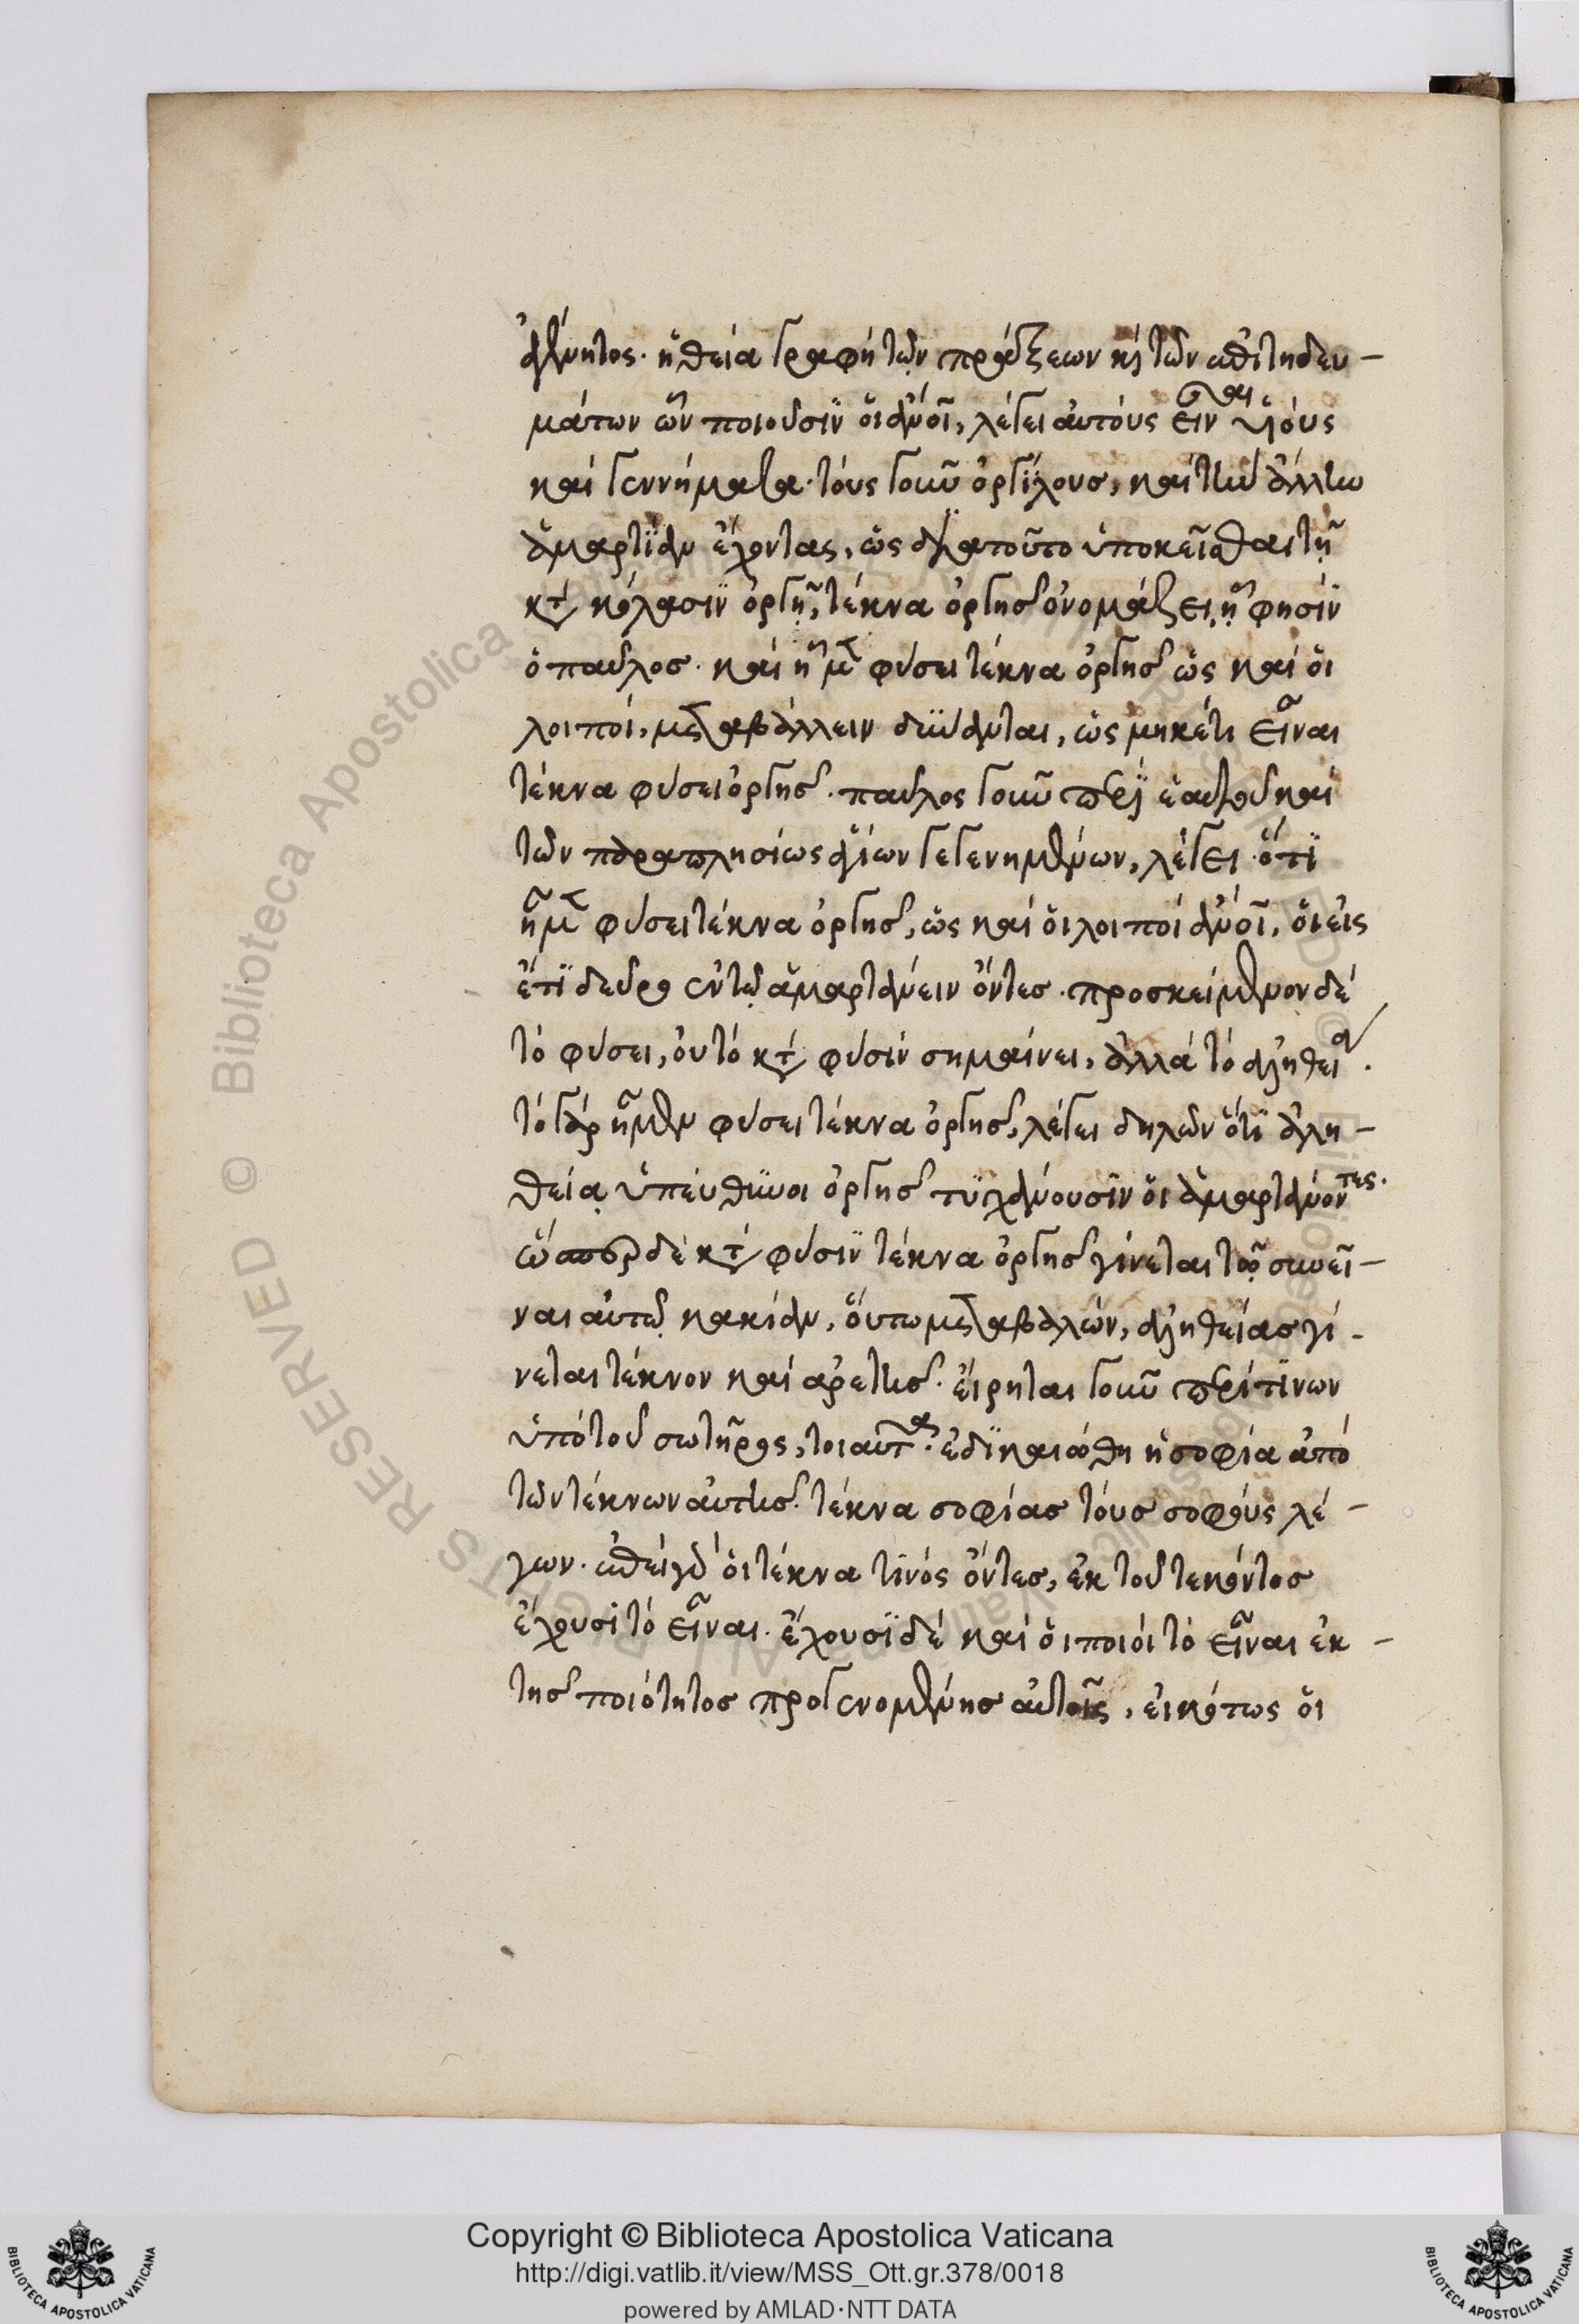 ἀγέννητος. ἡ θεία γραφὴ τῶν πράξεων κ τῶν ἐπιτηδευ-
μάτων ὧν ποιοῦσιν οἱ ἀνοι, λέγει αὐτοὺς εἶναι υἱοὺς
καὶ γεννήματα. τοὺς γοῦν ὀργίλους, καὶ τὴν ἄλλην
ἁμαρτίαν ἔχοντας, ὡς διὰ τοῦτο ὑποκεῖσθαι τῇ
κτ κόλασιν ὀργῇ, τέκνα ὀργῆς ὀνομάζει, ᾗ φησὶν
ὁ παῦλος. καὶ ἦμεν φύσει τέκνα ὀργῆς ὡς καὶ οἱ
λοιποί, μεταβάλλειν δύνανται, ὡς μηκέτι εἶναι
τέκνα φύσει ὀργῆς. παῦλος γοῦν περὶ ἑαυτοῦ καὶ
τῶν παραπλησίως ἁγίων γεγενημένων, λέγει ὅτι
ἦμεν φύσει τέκνα ὀργῆς, ὡς καὶ οἱ λοιποὶ ἀνοι, οἱ εἰς
ἔτι δεῦρο ἐν τῷ ἁμαρτάνειν ὄντες. προσκείμενον δὲ
τὸ φύσει, οὐ τὸ κτ φύσιν σημαίνει, ἀλλὰ τὸ ἀληθείᾳ.
τὸ γὰρ ἦμεν φύσει τέκνα ὀργῆς, λέγει δηλῶν ὅτι ἀλη-
θείᾳ ὑπεύθυνοι ὀργῆς τυγχάνουσιν οἱ ἁμαρτάνοντες.
ὥσπερ δὲ κτ φύσιν τέκνα ὀργῆς γίνεται τῷ συνεῖ-
ναι αὐτῷ κακίαν, οὕτω μεταβαλών, ἀληθείας γί-
νεται τέκνον καὶ ἀρετῆς. εἴρηται γοῦν περί τινων
ὑπὸ τοῦ σωτῆρος, τοιαῦτα. ἐδικαιώθη ἡ σοφία ἀπὸ
τῶν τέκνων αὐτῆς. τέκνα σοφίας τοὺς σοφοὺς λέ-
γων. ἐπεὶ γὰρ οἱ τέκνα τινὸς ὄντες, ἐκ τοῦ τεκόντος
ἔχουσι τὸ εἶναι. ἔχουσι δὲ καὶ οἱ ποιοὶ τὸ εἶναι ἐκ-
τῆς ποιότητος προσγενομένης αὐτοῖς, εἰκότως οἱ
Copyright © Biblioteca Apostolica Vaticana
http://digi.vatlib.it/view/MSS_Ott.gr.378/0018
powered by AMLAD·NTT DATA